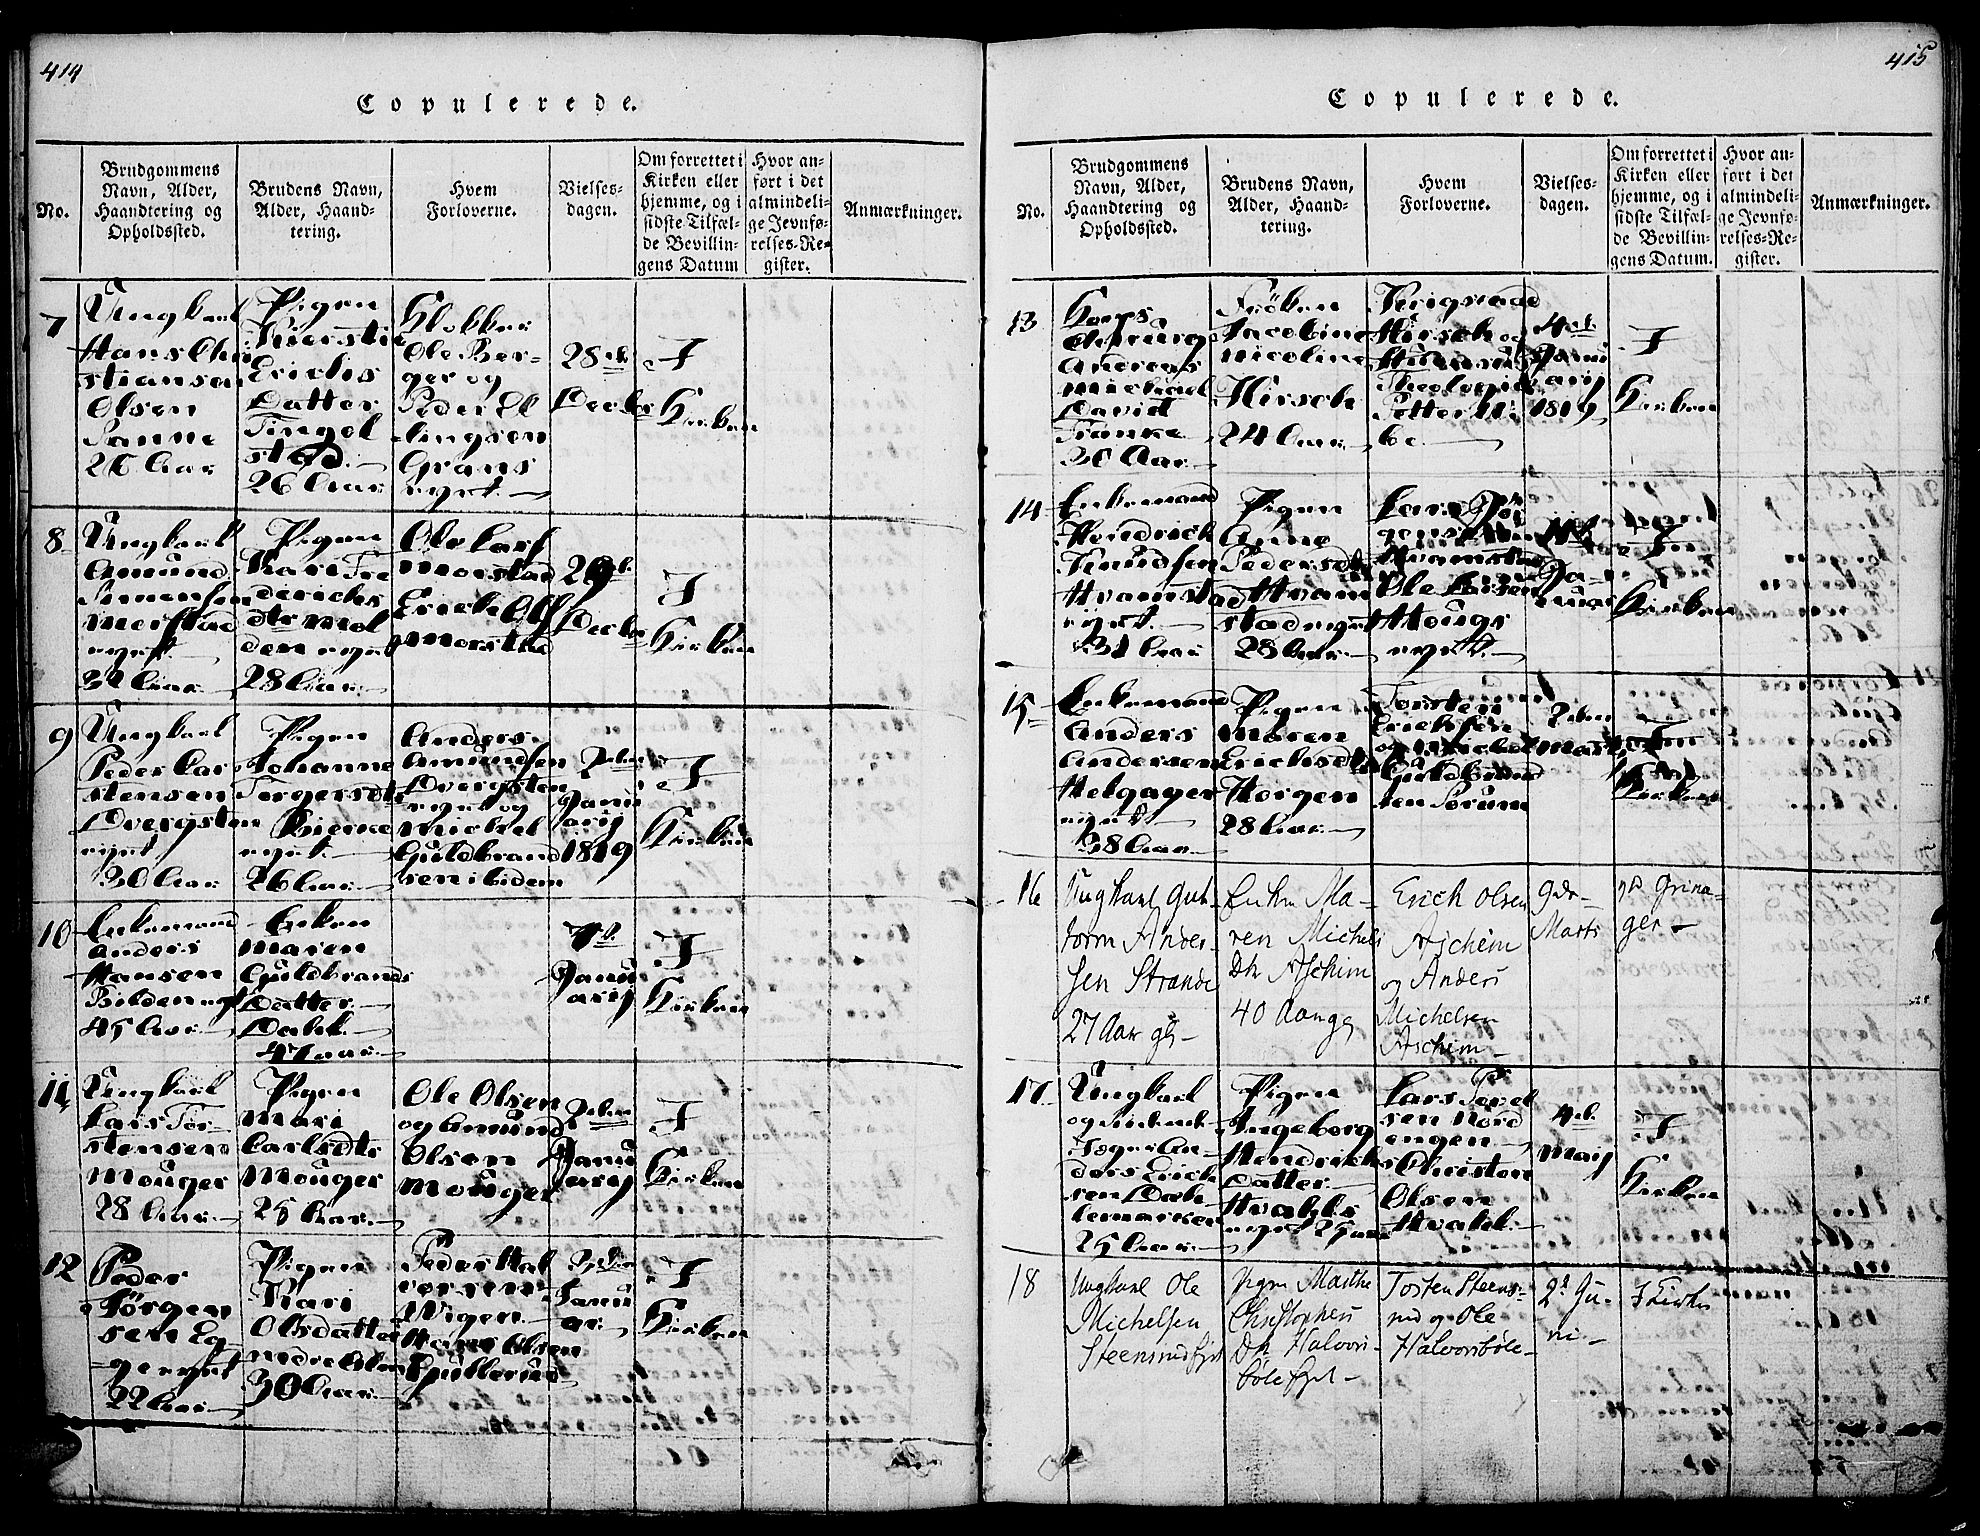 414
Copulerede.
No.
Brudgommens
Navn, Alder,
Haandtering og
Opholdssted.
Brudens Navn,
Alder, Haand-
tering.
Hvem
Forloverne.
Vielses-
dagen.
Om forrettet i
Kirken eller
hjemme, og i
sidste Tilfæl-
de Bevillin-
gens Datum
Hvor an-
ført i det
almindeli-
ge Jevnfø-
relses-Re-
gister.
Anmærkninger.
7
Ungkarl
Hans Chri
stiansen
Olsen
Sanne
26 Aar
Pigen
Kierstie
Erichs
Datter
Tingel
stad
26 Aar
Klokker
Ole Ber-
ger og
Peder El
lingsen
Grans
eyet
28de
Decbr
I
Kirken
8
Ungkarl
Amund
Simensen
Morstad
eyet
32 Aar
Pigen
Kari Fre
derichs
dtr Mol
den eyet
28 Aar
Ole Lars
Morstad
Erich Ols
Morstad
29de
Decbr
I
Kirken
9
Ungkarl
Peder Car
stensen
Dvergsten
eyet
30 Aar
Pigen
Johanne
Torgersdtr
Bierke
eyet
26 Aar
Anders
Amundsen
Dvergsten
eyet og
Michel
Guldbrand
sen ibidem
2den
Janu
arij
1819
I
Kirken
10
Enkemand
Anders
Hansen
Bilden eyet
45 Aar
Enken
Maren
Guldbrands
Datter
Dahl
47 aar
7de
Janu
arij
I
Kirken
11
Ungkarl
Lars Tor-
stensen
Mouger
28 Aar
Pigen
Mari
Carlsdtr
Mouger
25 Aar
Ole Olsen
og Amund
Olsen
Mouger
2den
Janu
arij
I
Kirken
12
Peder
Jörgen
sen Eg
ge eyet
22 Aar
Pigen
Kari
Olsdatter
30 Aar
Peder Hal
vorsen
Wigen
Hans Olsen
Janu
ar
I
Kirken
415
Copulerede.
No.
Brudgommens
Navn, Alder,
Haandtering og
Opholdssted.
Brudens Navn,
Alder, Haand-
tering.
Hvem
Forloverne.
Vielses-
dagen.
Om forrettet i
Kirken eller
hjemme, og i
sidste Tilfæl-
de Bevillin-
gens Datum.
Hvor an-
ført i det
almindeli-
ge Jevnfø-
relses-Re-
gister.
Anmærkninger.
13
Andreas
Michael
David
Franke
30 Aar
Fröken
Jacobine
Nicoline
Hirsch
24 Aar
Krigsraad
Hirsch og
4de
Janu
arij
1819
I
Kirken
14
Enkemand
Hendrich
Knudsen
Hvamstad
eyet
31 Aar
Pigen
Anne
Pedersdtr
Hvam
stad eyet
28 Aar
Lars Jör
gensen
Hvamstad
Ole Larsen
Hougs
eyet
Ja-
nuar
I
Kirken
15
Enkemand
Anders
Andersen
Helgager
eyet
38 Aar
Pigen
Maren
Erichsdtr
Horgen
28 Aar
Torsten
Erichsen
og Michel
Guldbrand
sen Sorum
2den
Marts
I
Kirken
16
Ungkarl Gut-
torm Ander-
sen Strande
27 Aar gl
Enken Ma-
ren Michels
Dtr Aschim
40 Aar gl
Erich Olsen
Aschim
og Anders
Michelsen
Aschim
9de
Marts
Grina-
ger
17
Ungkarl
ders Erich
sen
25 Aar
Pigen
Ingeborg
Hendrichs
Datter
Hvahls
eyet 25 aar
Lars Povel
sen Nord
engen
Christen
Olsen
Hvahl
4de
Maij
I
Kirken
18
Ungkarl Ole
Michelsen
Steensrud Eyet
Pigen Marthe
Christophers
Dtr Halvors-
böle Eyet
Torsten Steens-
rud og Ole
Halvorsböle
2d Ju-
ni
I Kirken